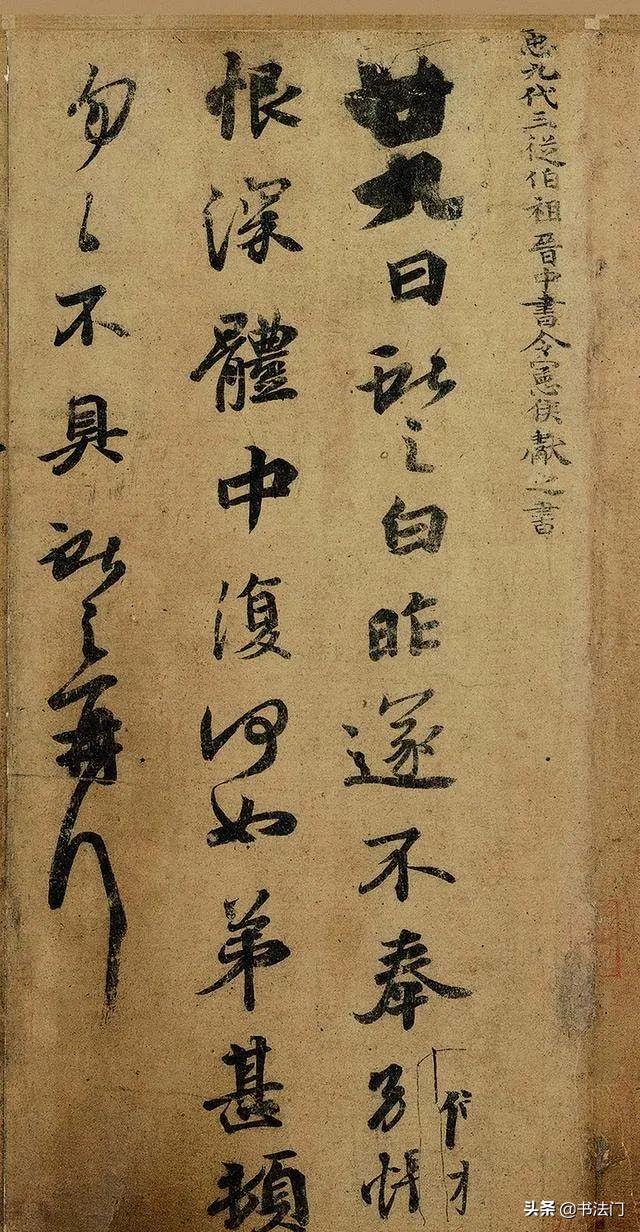 𢘑九代三從伯祖晉中書令憲侯獻之書
廿九日獻之白昨遂不奉別悵
恨深體中復何如弟甚頓
匆々不具獻之再拜
头条 @书法门